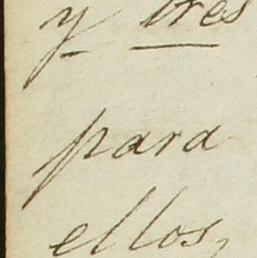 y tres
para
ellos,